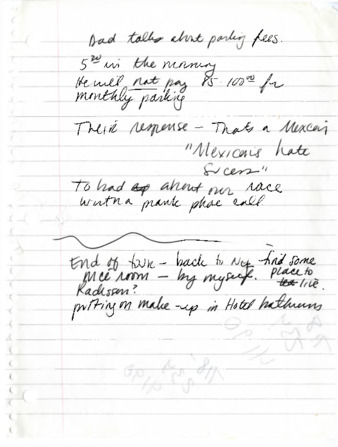 Dad talks about parking fees.
5⁰⁰ in the morning
He will not pay 85-100⁰⁰ for
monthly parking
Their response - Thats a Mexican
"Mexicans hate
Sucess"
To bad about our race
with a prank phone call
End of tour - back to NY - find some
nice room - by myself. place to
Radisson? live.
putting on make-up in Hotel bathrooms